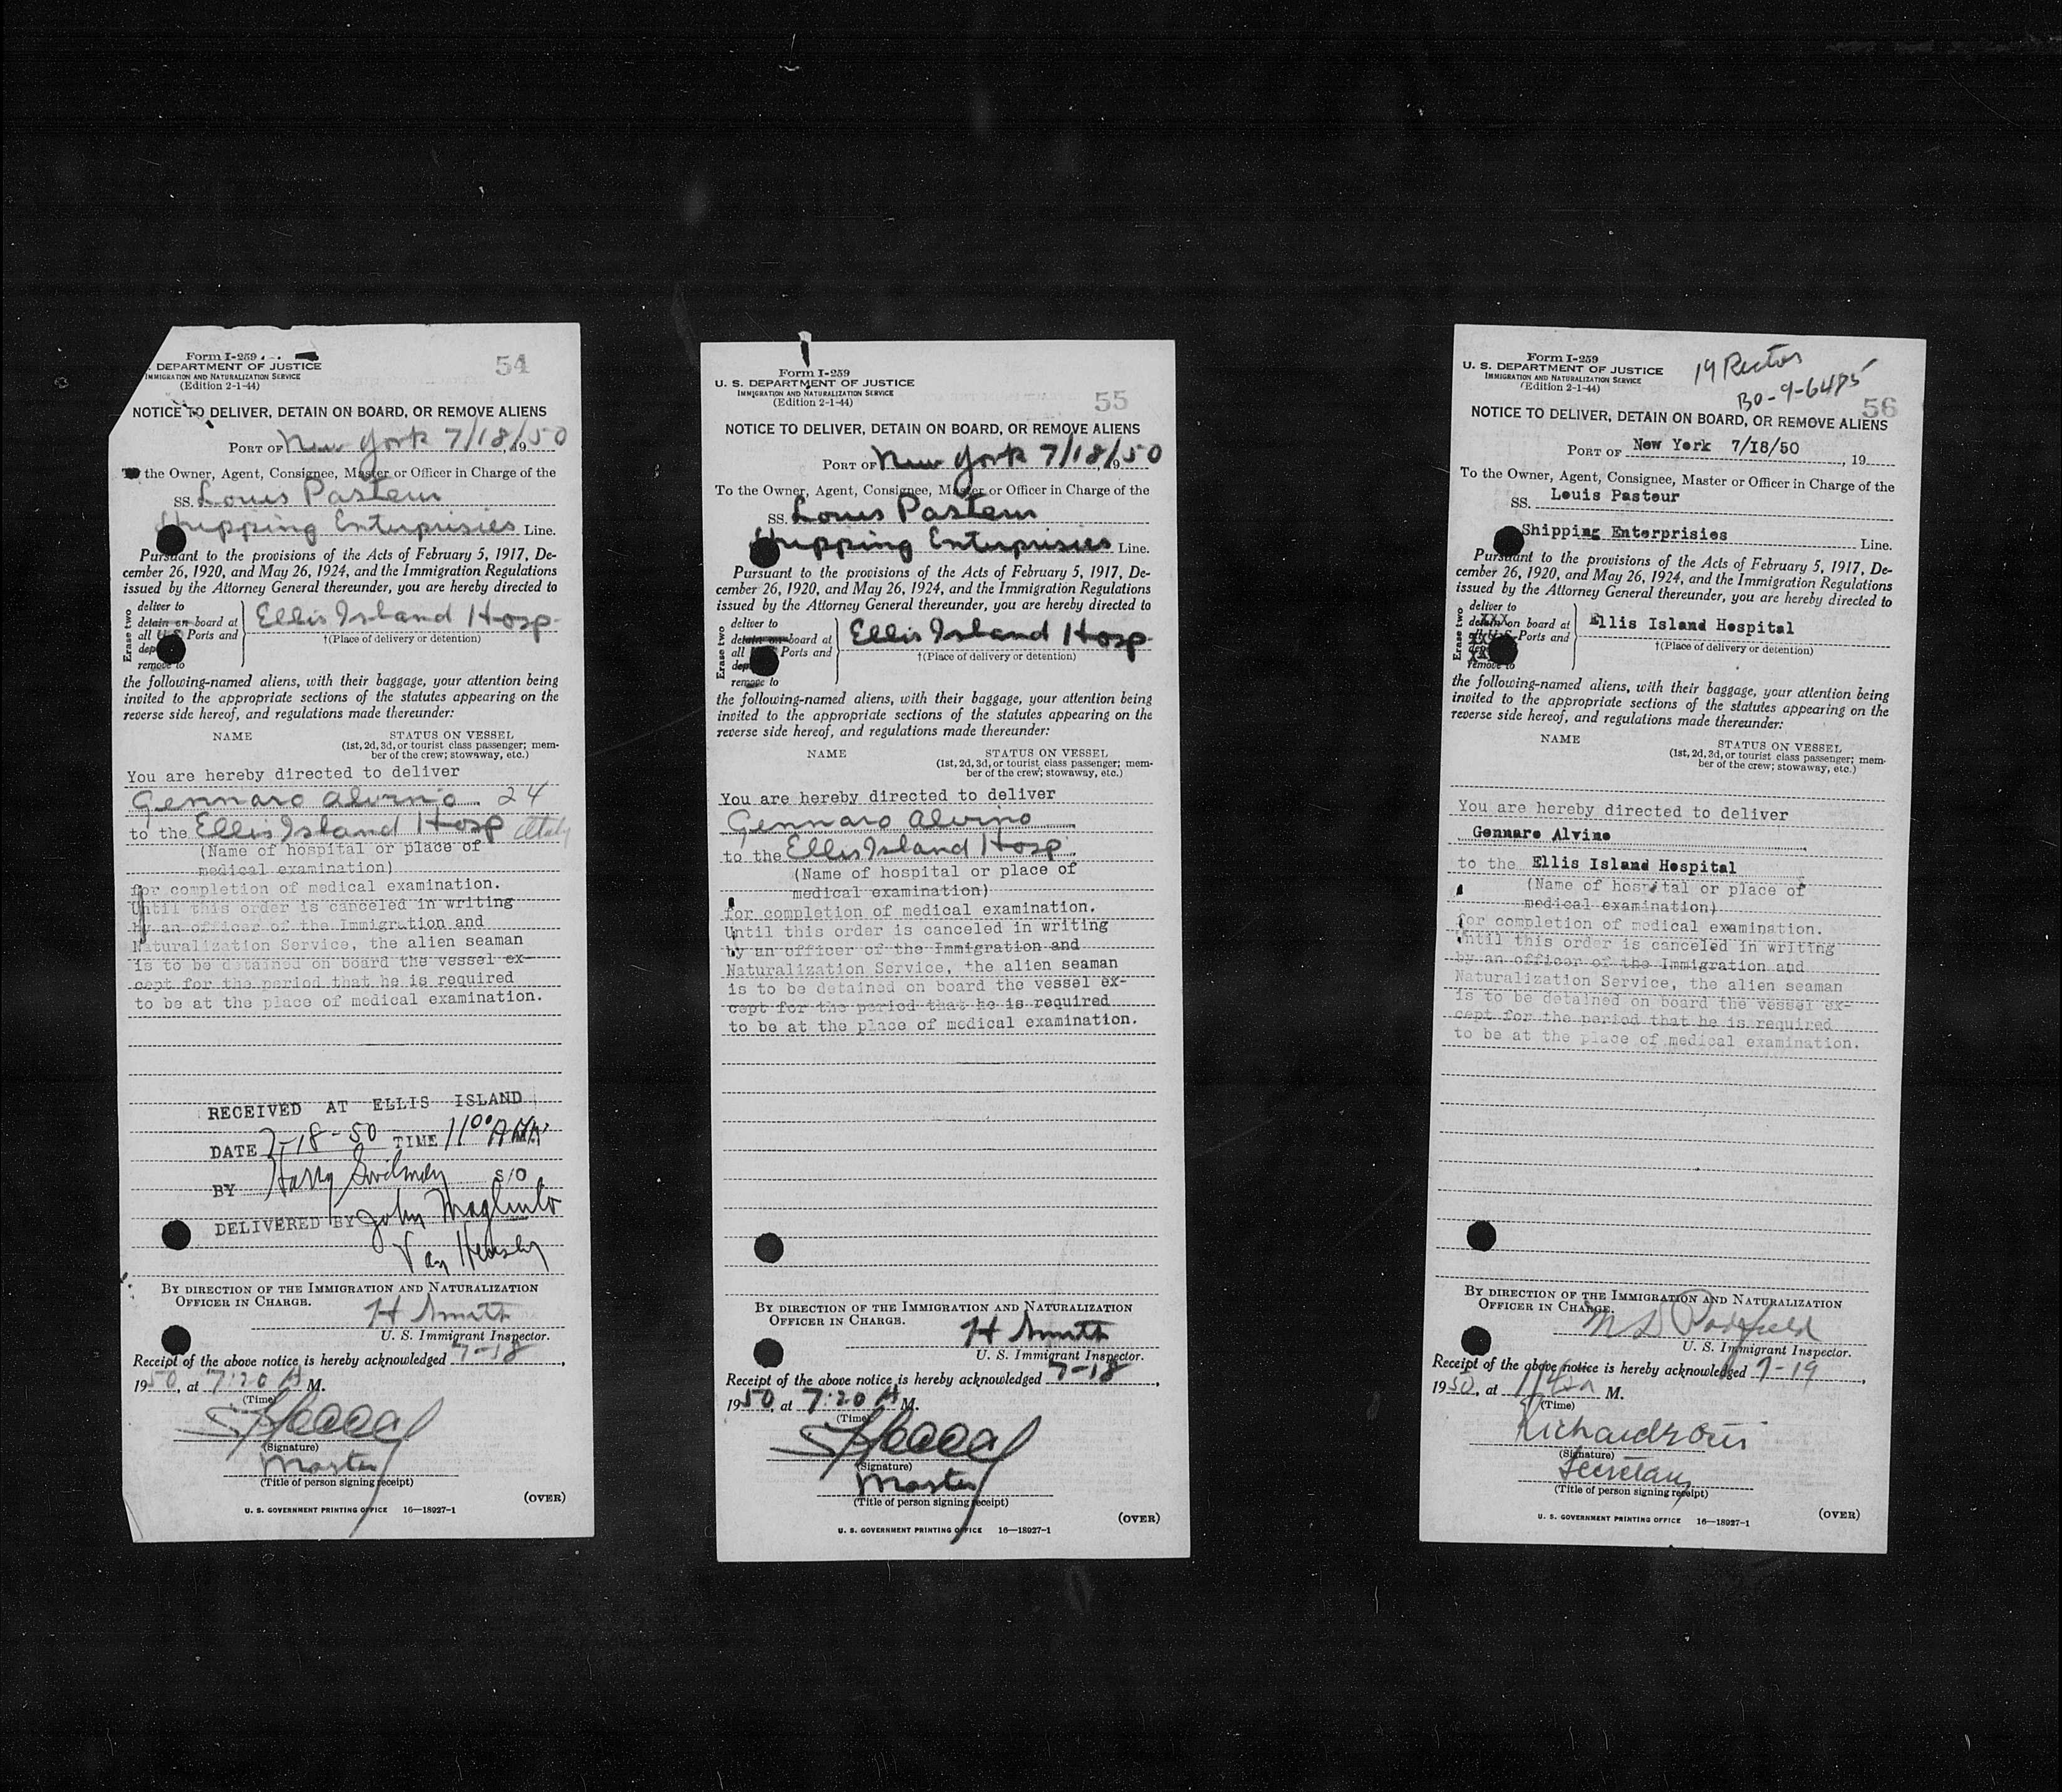 Form I-259
54
U. S. DEPARTMENT OF JUSTICE
IMMIGRATION AND NATURALIZATION SERVICE
(Edition 2-1-44)
NOTICE TO DELIVER, DETAIN ON BOARD, OR REMOVE ALIENS
PORT OF New York 7/18/50, 19
To the Owner, Agent, Consignee, Master or Officer in Charge of the
SS. Louis Pasteur
Shipping Enterprisies Line.
Pursuant to the provisions of the Acts of February 5, 1917, De-
cember 26, 1920, and May 26, 1924, and the Immigration Regulations
issued by the Attorney General thereunder, you are hereby directed to
Erase two
deliver to
detain on board at
all U S Ports and
dep
remove to
Ellis Island Hosp.
†(Place of delivery or detention)
the following-named aliens, with their baggage, your attention being
invited to the appropriate sections of the statutes appearing on the
reverse side hereof, and regulations made thereunder:
NAME STATUS ON VESSEL
(1st, 2d, 3d, or tourist class passenger; mem-
ber of the crew; stowaway, etc.)
You are hereby directed to deliver
Gennaro Alvino 24
to the Ellis Island Hosp Italy
(Name of hospital or place of
medical examination)
for completion of medical examination.
Until this order is canceled in writing
by an officer of the Immigration and
Naturalization Service, the alien seaman
is to be detained on board the vessel ex-
cept for the period that he is required
to be at the place of medical examination.
RECEIVED AT ELLIS ISLAND
DATE 7-18-50 TIME 11 00 A M.
BY Harry S/O
DELIVERED BY John
Van
BY DIRECTION OF THE IMMIGRATION AND NATURALIZATION
OFFICER IN CHARGE.
H Smith
U. S. Immigrant Inspector.
Receipt of the above notice is hereby acknowledged 7-18,
1950, at 7:20 A M.
(Time)
(Signature)
Master
(Title of person signing receipt)
(OVER)
U. S. GOVERNMENT PRINTING OFFICE 16—18927-1
Form I-259
U. S. DEPARTMENT OF JUSTICE
IMMIGRATION AND NATURALIZATION SERVICE
(Edition 2-1-44)
55
NOTICE TO DELIVER, DETAIN ON BOARD, OR REMOVE ALIENS
PORT OF New York 7/18/50
To the Owner, Agent, Consignee, Master or Officer in Charge of the
SS. Louis Pasteur
Shipping Enterprisies Line.
Pursuant to the provisions of the Acts of February 5, 1917, De-
cember 26, 1920, and May 26, 1924, and the Immigration Regulations
issued by the Attorney General thereunder, you are hereby directed to
Erase two
deliver to
detain on board at
all Ports and
dep
remove to
Ellis Island Hosp.
†(Place of delivery or detention)
the following-named aliens, with their baggage, your attention being
invited to the appropriate sections of the statutes appearing on the
reverse side hereof, and regulations made thereunder:
NAME STATUS ON VESSEL
(1st, 2d, 3d, or tourist class passenger; mem-
ber of the crew; stowaway, etc.)
You are hereby directed to deliver
Gennaro Alvino
to the Ellis Island Hosp.
(Name of hospital or place of
medical examination)
for completion of medical examination.
Until this order is canceled in writing
by an officer of the Immigration and
Naturalization Service, the alien seaman
is to be detained on board the vessel ex-
cept for the period that he is required
to be at the place of medical examination.
BY DIRECTION OF THE IMMIGRATION AND NATURALIZATION
OFFICER IN CHARGE.
H Smith
U. S. Immigrant Inspector.
Receipt of the above notice is hereby acknowledged 7-18,
1950, at 7:20 A M.
(Time)
(Signature)
Master
(Title of person signing receipt)
(OVER)
U. S. GOVERNMENT PRINTING OFFICE 16—18927-1
Form I-259
U. S. DEPARTMENT OF JUSTICE
IMMIGRATION AND NATURALIZATION SERVICE
(Edition 2-1-44)
19 Rector
BO-9-6485
56
NOTICE TO DELIVER, DETAIN ON BOARD, OR REMOVE ALIENS
PORT OF New York 7/18/50, 19
To the Owner, Agent, Consignee, Master or Officer in Charge of the
SS. Louis Pasteur
Shipping Enterprisies Line.
Pursuant to the provisions of the Acts of February 5, 1917, De-
cember 26, 1920, and May 26, 1924, and the Immigration Regulations
issued by the Attorney General thereunder, you are hereby directed to
Erase two
deliver to
detain on board at
all U S Ports and
remove to
Ellis Island Hospital
†(Place of delivery or detention)
the following-named aliens, with their baggage, your attention being
invited to the appropriate sections of the statutes appearing on the
reverse side hereof, and regulations made thereunder:
NAME STATUS ON VESSEL
(1st, 2d, 3d, or tourist class passenger; mem-
ber of the crew; stowaway, etc.)
You are hereby directed to deliver
Gennaro Alvino
to the Ellis Island Hospital
(Name of hospital or place of
medical examination)
for completion of medical examination.
Until this order is canceled in writing
by an officer of the Immigration and
Naturalization Service, the alien seaman
is to be detained on board the vessel ex-
cept for the period that he is required
to be at the place of medical examination.
BY DIRECTION OF THE IMMIGRATION AND NATURALIZATION
OFFICER IN CHARGE.
U. S. Immigrant Inspector.
Receipt of the above notice is hereby acknowledged 7-19,
1950, at M.
(Time)
(Signature)
Secretary
(Title of person signing receipt)
(OVER)
U. S. GOVERNMENT PRINTING OFFICE 16—18927-1